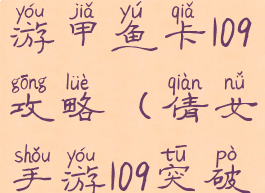 yóu jiǎ yú qiǎ
游甲鱼卡109
gōng lüè qiàn nǚ
攻略（倩女
shǒu yóu tū pò
手游109突破